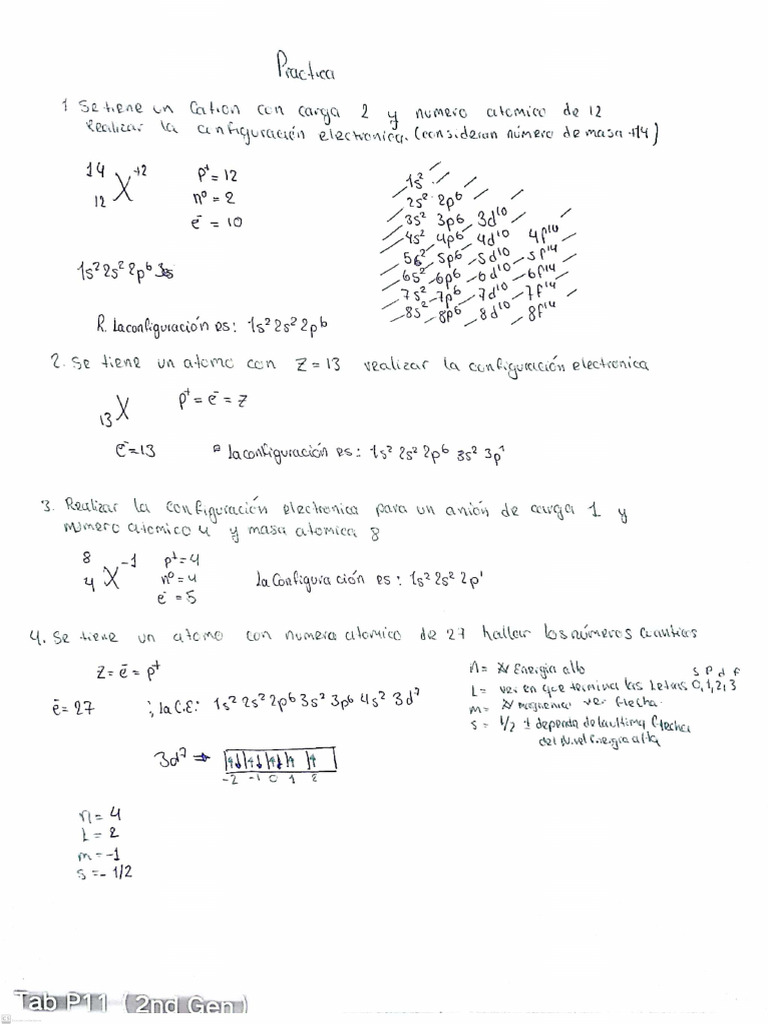 Practica
1 Se tiene un Cation con carga 2 y numero atomico de 12
Realizar la configuración electronica. (consideran número de masa +14)
14 X +2
12
p+ = 12
n° = 2
e- = 10
1s²
2s² 2p6
3s² 3p6 3d10
4s² 4p6 4d10 4f14
5s² 5p6 5d10 5f14
6s² 6p6 6d10 6f14
7s² 7p6 7d10 7f14
8s² 8p6 8d10 8f14
1s² 2s² 2p6 3s
R. La configuración es: 1s² 2s² 2p6
2. Se tiene un atomo con Z = 13 realizar la configuración electronica
13 X p+ = e- = Z
e- = 13 La configuración es: 1s² 2s² 2p6 3s² 3p1
3. Realizar la configuración electronica para un anión de carga 1 y
numero atomico 4 y masa atomica 8
8 X -1
4
p+ = 4
n° = 4
e- = 5
La Configuración es: 1s² 2s² 2p1
4. Se tiene un atomo con numero atomico de 27 hallar los números cuanticos
Z = e- = p+
e- = 27 ; la C.E: 1s² 2s² 2p6 3s² 3p6 4s² 3d7
n = Energia alto
s p d f
L = ver en que termina las Letras 0, 1, 2, 3
m = magnenico ver flecha.
s = 1/2 ± depende de la ultima flecha
del Nivel Energia alta
3d7 ⇒
-2 -1 0 1 2
n = 4
L = 2
m = -1
s = - 1/2
Tab P11 (2nd Gen)